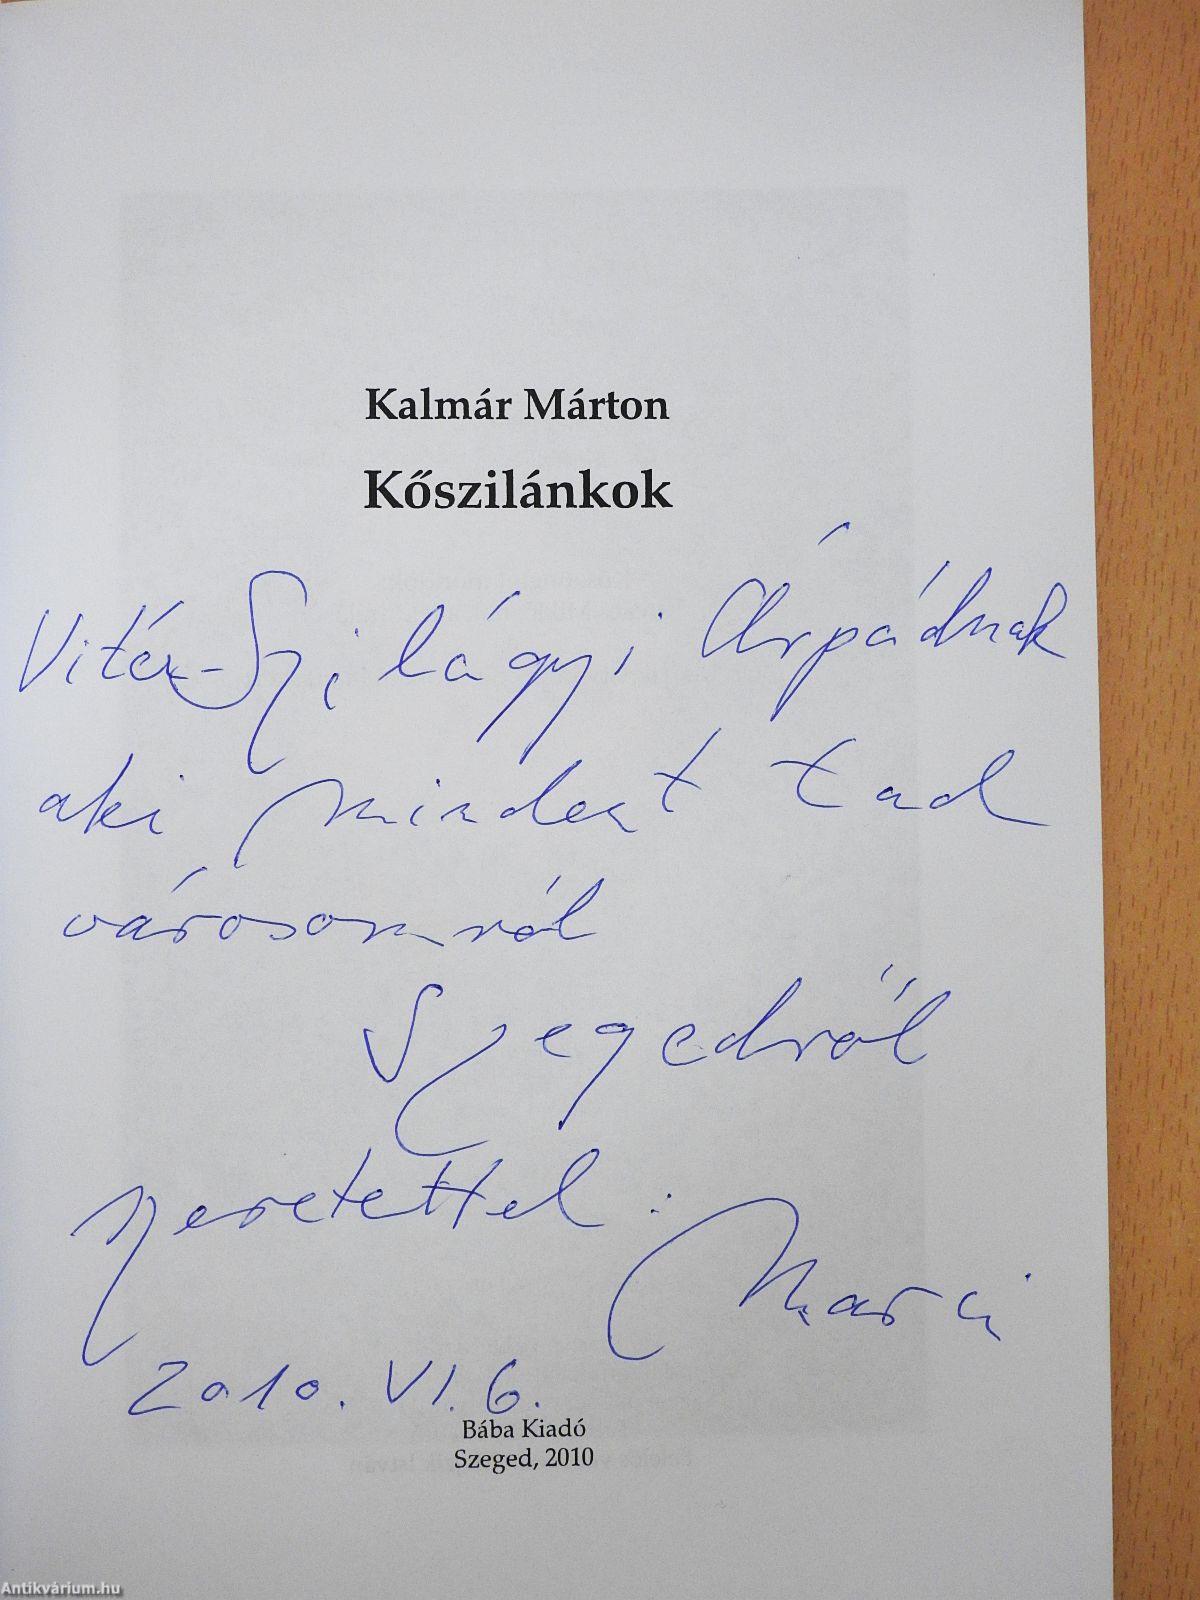 Kalmár Márton
Kőszilánkok
Vitéz-Szilágyi Árpádnak
aki mindent tud
városomról
Szegedről
szeretettel:
Marci
2010. VI. 6.
Bába Kiadó
Szeged, 2010
Antikvárium.hu